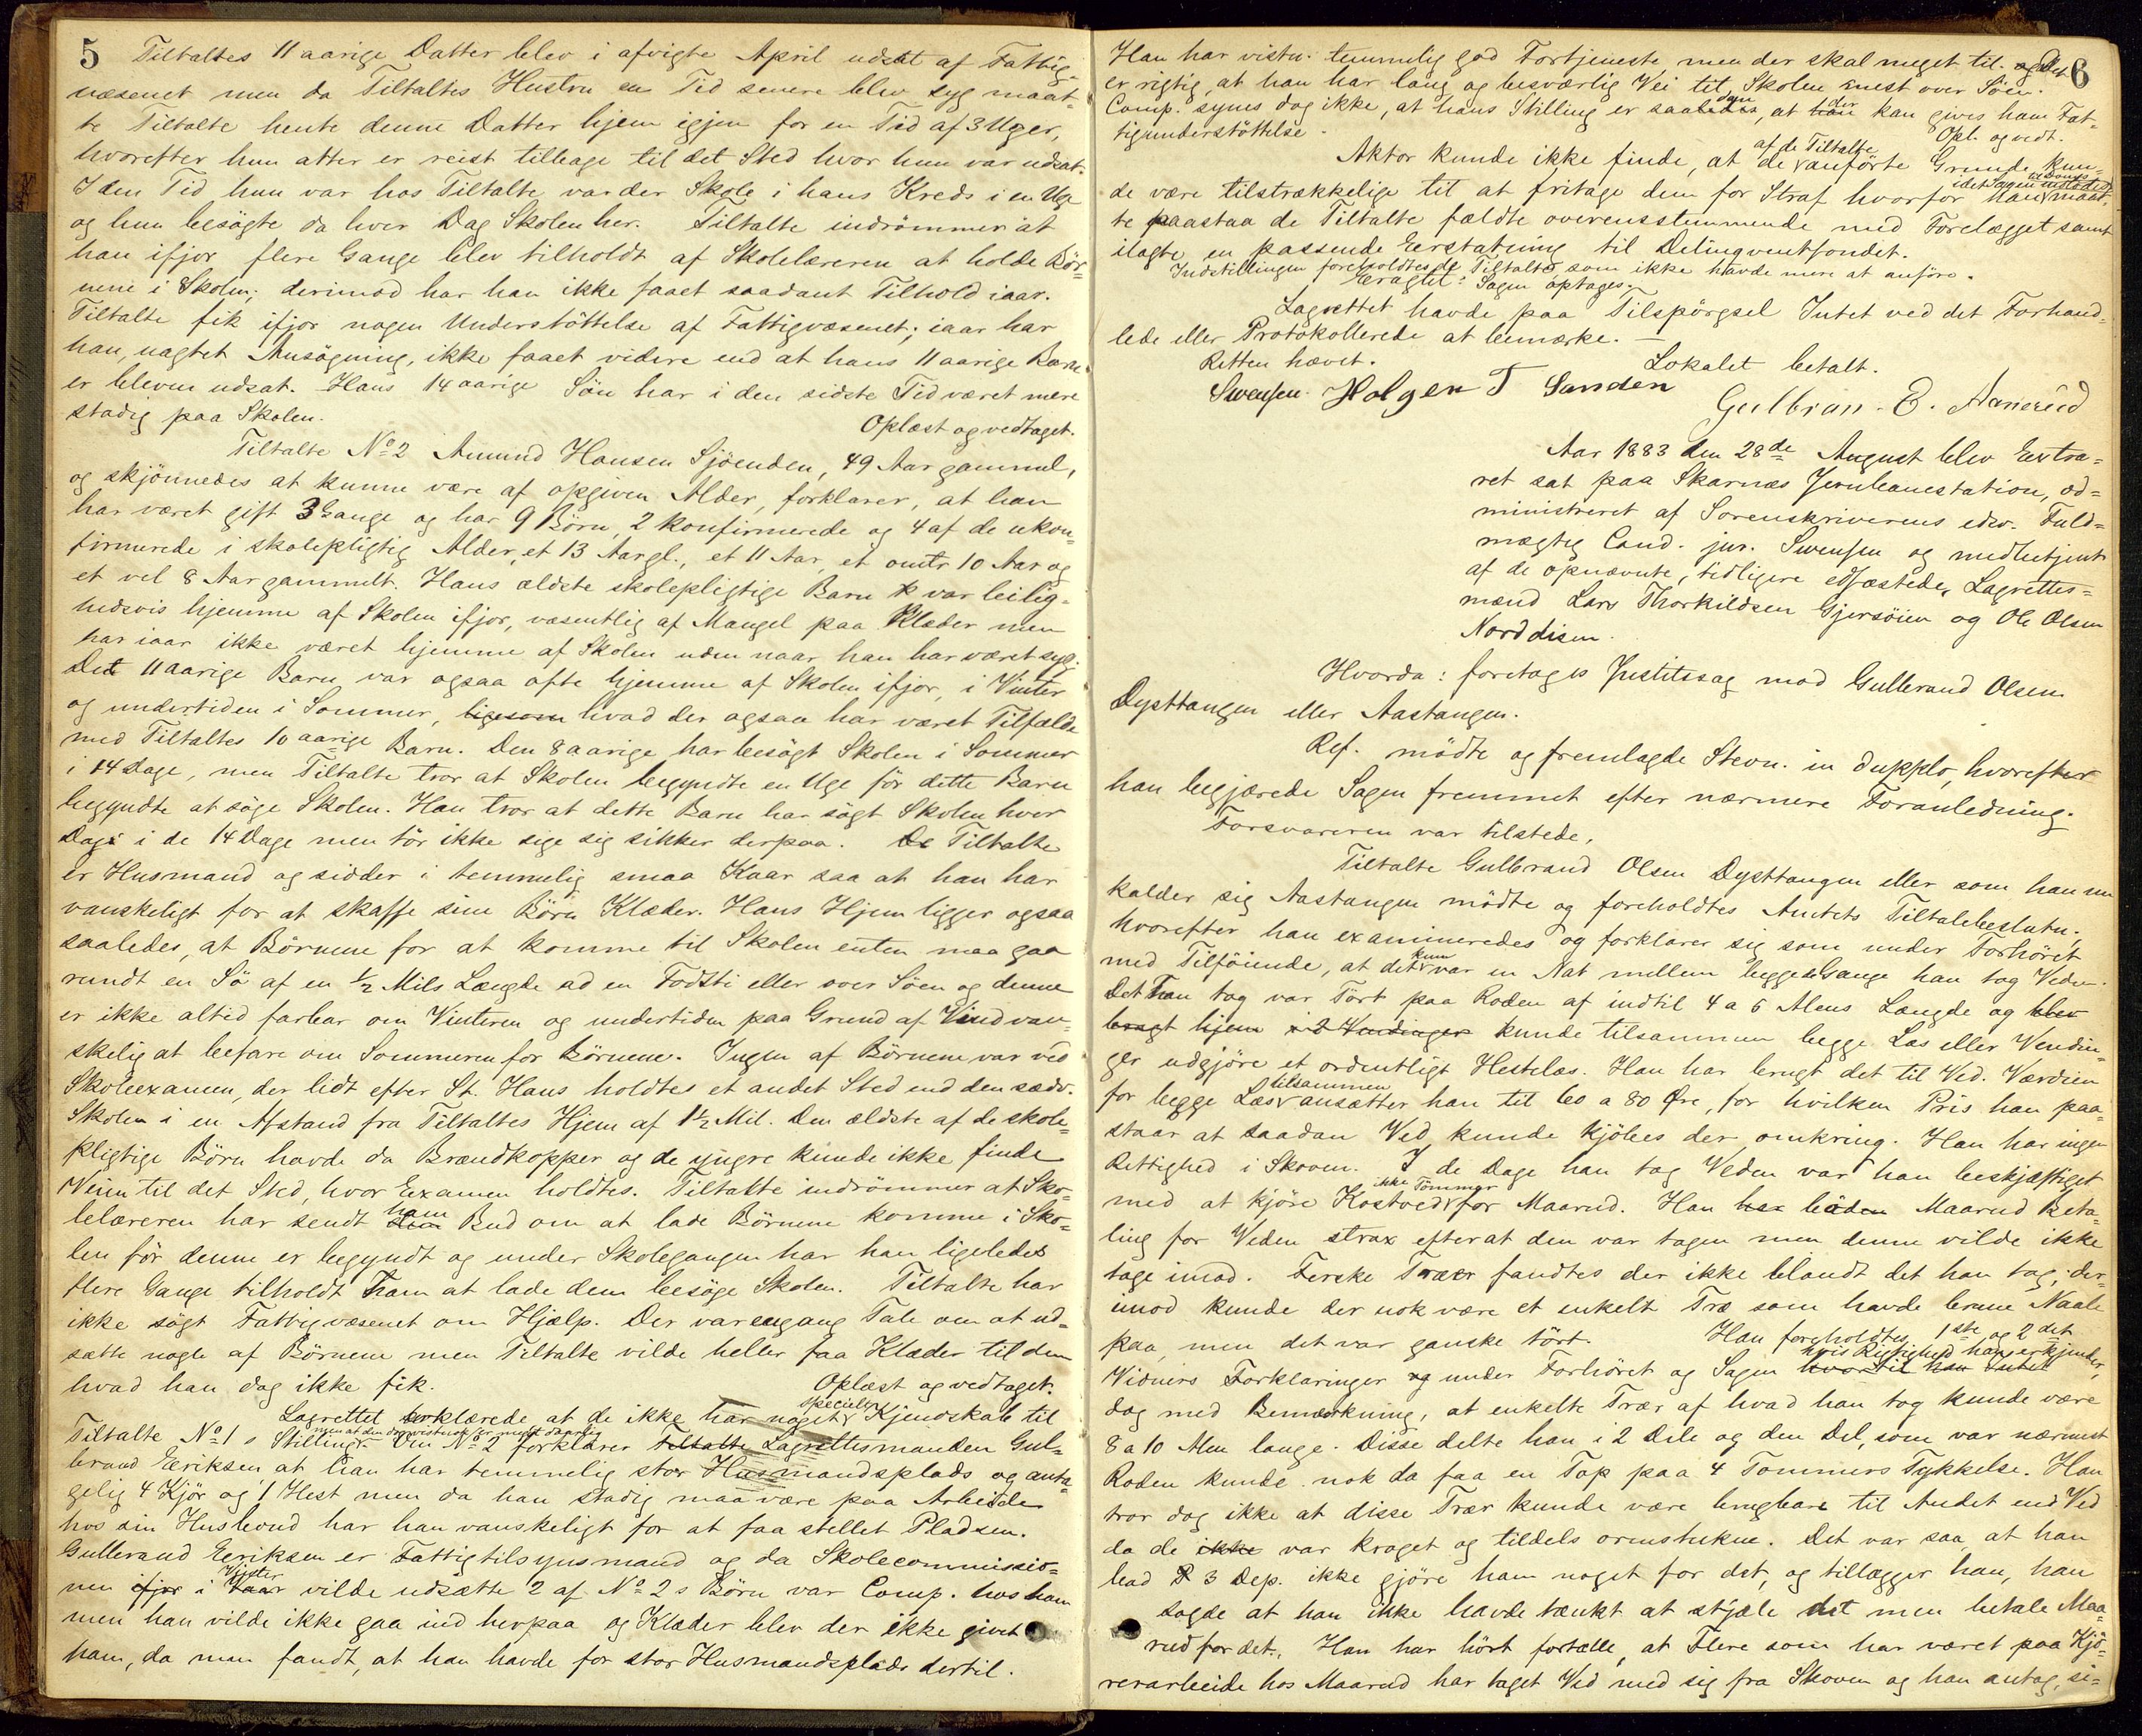 5
Tiltaltes 11 aarige Datter blev i afvigte April udsat af Fattig-
væsenet men da Tiltaltes Hustru en Tid senere blev syg maat-
te Tiltalte hente denne Datter hjem igjen for en Tid af 3 Uger,
hvorefter hun atter er reist tilbage til det Sted hvor hun var udsat.
I den Tid hun var hos Tiltalte, var der Skole i hans Kreds i en Uge
og hun besøgte da hver Dag Skolen her. Tiltalte indrømmer at
han ifjor flere Gange blev tilholdt af Skolelæreren at holde Bør-
nene i Skolen; derimod har han ikke faaet saadant Tilhold iaar.
Tiltalte fik ifjor nogen Understøttelse af Fattigvæsenet; iaar har
han, uagtet Ansøgning, ikke faaet videre end at hans 11 aarige Barn
er bleven udsat. Hans 14 aarige Søn har i den sidste Tid været mere
stadig paa Skolen.
Oplæst og vedtaget.
Tiltalte No 2 Amund Hansen Sjöenden, 49 Aar gammel,
og skjønnedes at kunne være af opgiven Alder, forklarer, at han
har været gift 3 Gange og har 9 Børn, 2 konfirmerede og 4 af de ukon-
firmerede i skolepligtig Alder, et 13 Aar gl., et 11 Aar, et omtr 10 Aar og
et vel 8 Aar gammelt. Hans ældste skolepligtige Barn var leilig-
hedsvis hjemme af Skolen ifjor, væsentlig af Mangel paa Klæder men
har iaar ikke været hjemme af Skolen uden naar han har været syg.
Det 11 aarige Barn var ogsaa ofte hjemme af Skolen ifjor, i Vinter
og undertiden i Sommer, ligesom hvad der ogsaa har været Tilfælde
med Tiltaltes 10 aarige Barn. Den 8 aarige har besøgt Skolen i Sommer
i 14 Dage, men Tiltalte tror at Skolen begyndte en Uge før dette Barn
begyndte at søge Skolen. Han tror at dette Barn har søgt Skolen hver
Dag i de 14 Dage men tør ikke sige sig sikker derpaa. De Tiltalte
er Husmand og sidder i temmelig smaa Kaar saa at han har
vanskeligt for at skaffe sine Børn Klæder. Hans Hjem ligger ogsaa
saaledes, at Børnene for at komme til Skolen enten maa gaa
rundt en Sø af en ½ Mils Længde ad en Fodsti eller over Søen og denne
er ikke altid farbar om Vinteren og undertiden paa Grund af Vind van-
skelig at befare om Sommeren for Børnene. Ingen af Børnene var ved
Skoleexamen, der lidt efter St. Hans holdtes et andet Sted end den sædv.
Skolen i en Afstand fra Tiltaltes Hjem af 1½ Mil. Den ældste af de skole-
pligtige Børn havde da Brændkopper og de yngre kunde ikke finde
Veien til det Sted, hvor Examen holdtes. Tiltalte indrømmer at Sko-
lelæreren har sendt ham Bud om at lade Børnene komme i Sko-
len før denne er begyndt og under Skolegangen har han ligeledes
flere Gange tilholdt ham at lade dem besøge Skolen. Tiltalte har
ikke søgt Fattigvæsenet om Hjælp. Der var engang Tale om at ud-
sætte nogle af Børnene men Tiltalte vilde heller faa Klæder til dem
hvad han dog ikke fik.
Oplæst og vedtaget.
Lagrettet erklærede at de ikke har noget specielt Kjendskab til
Tiltalte No 1s Stilling men at den dog vistnok er meget daarlig. Om No 2 forklarer Tiltalte Lagrettesmanden Gul-
brand Eriksen at han har temmelig stor Husmandsplads og anta-
gelig 4 Kjør og 1 Hest men da han stadig maa være paa Arbeide
hos sin Husbond har han vanskeligt for at faa stellet Pladsen.
Gulbrand Eriksen er Fattigtilsynsmand og da Skolecommissio-
nen ifjor i Vinter vilde udsætte 2 af No 2s Børn var Comp. hos ham
men han vilde ikke gaa ind herpaa og Klæder blev der ikke givet
ham, da man fandt, at han havde for stor Husmandsplads dertil.
6
Han har vistn. temmelig god Fortjeneste men der skal meget til. og Det
er rigtig, at han har lang og besværlig Vei til Skolen mest over Søen.
Comp. synes dog ikke, at hans Stilling er saadan, at der kan gives ham Fat-
tigunderstøttelse.
Opl. og vedt.
Aktor kunde ikke finde, at de af de Tiltalte anførte Grunde kun-
de være tilstrækkelige til at fritage dem for Straf hvorfor han maat-
te paastaa de Tiltalte fældte overensstemmende med Forelægget samt
ilagte en passende Erstatning til Delinqventfondet.
Indstillingen foreholdtes de Tiltalte, som ikke havde mere at anføre.
Eragtet: Sagen optages.
Lagrettet havde paa Tilspørgsel Intet ved det Forhand-
lede eller Protokollerede at bemærke. —
Retten hævet.
Lokalet betalt.
Swensen. Holger T Sanden
Gulbran. E. Nanerud
Aar 1883 den 28de August blev Extra-
ret sat paa Skarnæs Jernbanestation, ad-
ministreret af Sorenskriverens edsv. Fuld-
mægtig Cand. jur. Swensen og medbetjent
af de opnævnte, tidligere edfæstede, Lagrettes-
mænd Lars Thorkildsen Gjersøien og Ole Olsen
Norddisen.
Hvorda: foretages Justitssag mod Gulbrand Olsen
Dysttangen eller Aastangen.
Ref. mødte og fremlagde Stevn. in dupplo, hvorefter
han begjærede Sagen fremmet efter nærmere Foranledning.
Forsvareren var tilstede.
Tiltalte Gulbrand Olsen Dysttangen eller som han nu
kalder sig Aastangen mødte og foreholdtes Amtets Tiltalebeslutn.,
hvorefter han examineredes og forklarer sig som under Forhøret
med Tilføiende, at det kun var en Nat mellem begge Gange han tog Veden.
Det han tog var Tört paa Roden af indtil 4 a 5 Alens Længde og blev
bragt hjem i 2 Vendinger kunde tilsammen begge Læs eller Vendin-
ger udgjøre et ordentligt Hestelæs. Han har brugt det til Ved. Værdien
for begge Læs tilsammen ansætter han til 60 a 80 Øre, for hvilken Pris han paa-
staar at saadan Ved kunde kjøbes der omkring. Han har ingen
Rettighed i Skoven. I de Dage han tog Veden var han beskjæftiget
med at kjøre Kastved ikke Tømmer for Maarud. Han har bøden Maarud Beta-
ling for Veden strax efterat den var tagen men denne vilde ikke
tage imod. Ferske Trær fandtes der ikke blandt det han tog; der-
imod kunde der nok være et enkelt Træ som havde brune Naale
paa, men det var ganske tørt. Han foreholdtes 1ste og 2det
Vidners Forklaringer og under Forhøret og Sagen hvortil han Intet hvis Rigtighed han erkjender,
dog med Bemærkning, at enkelte Trær af hvad han tog kunde være
8 a 10 Alen lange. Disse delte han i 2 Dele og den Del, som var nærmest
Roden kunde nok da faa en Top paa 4 Tommers Tykkelse. Han
tror dog ikke at disse Trær kunde være brugbare til Andet end Ved
da de ikke var kroget og tildels ormstukne. Det var saa, at han
bad 3 Dep. ikke gjøre ham noget for det, og tillægger han, han
sagde at han ikke havde tænkt at stjæle det men betale Maa-
rud for det. Han har hørt fortælle, at Flere som har været paa Kjø-
rerarbeide hos Maarud har taget Ved med sig fra Skoven og han antog, si-